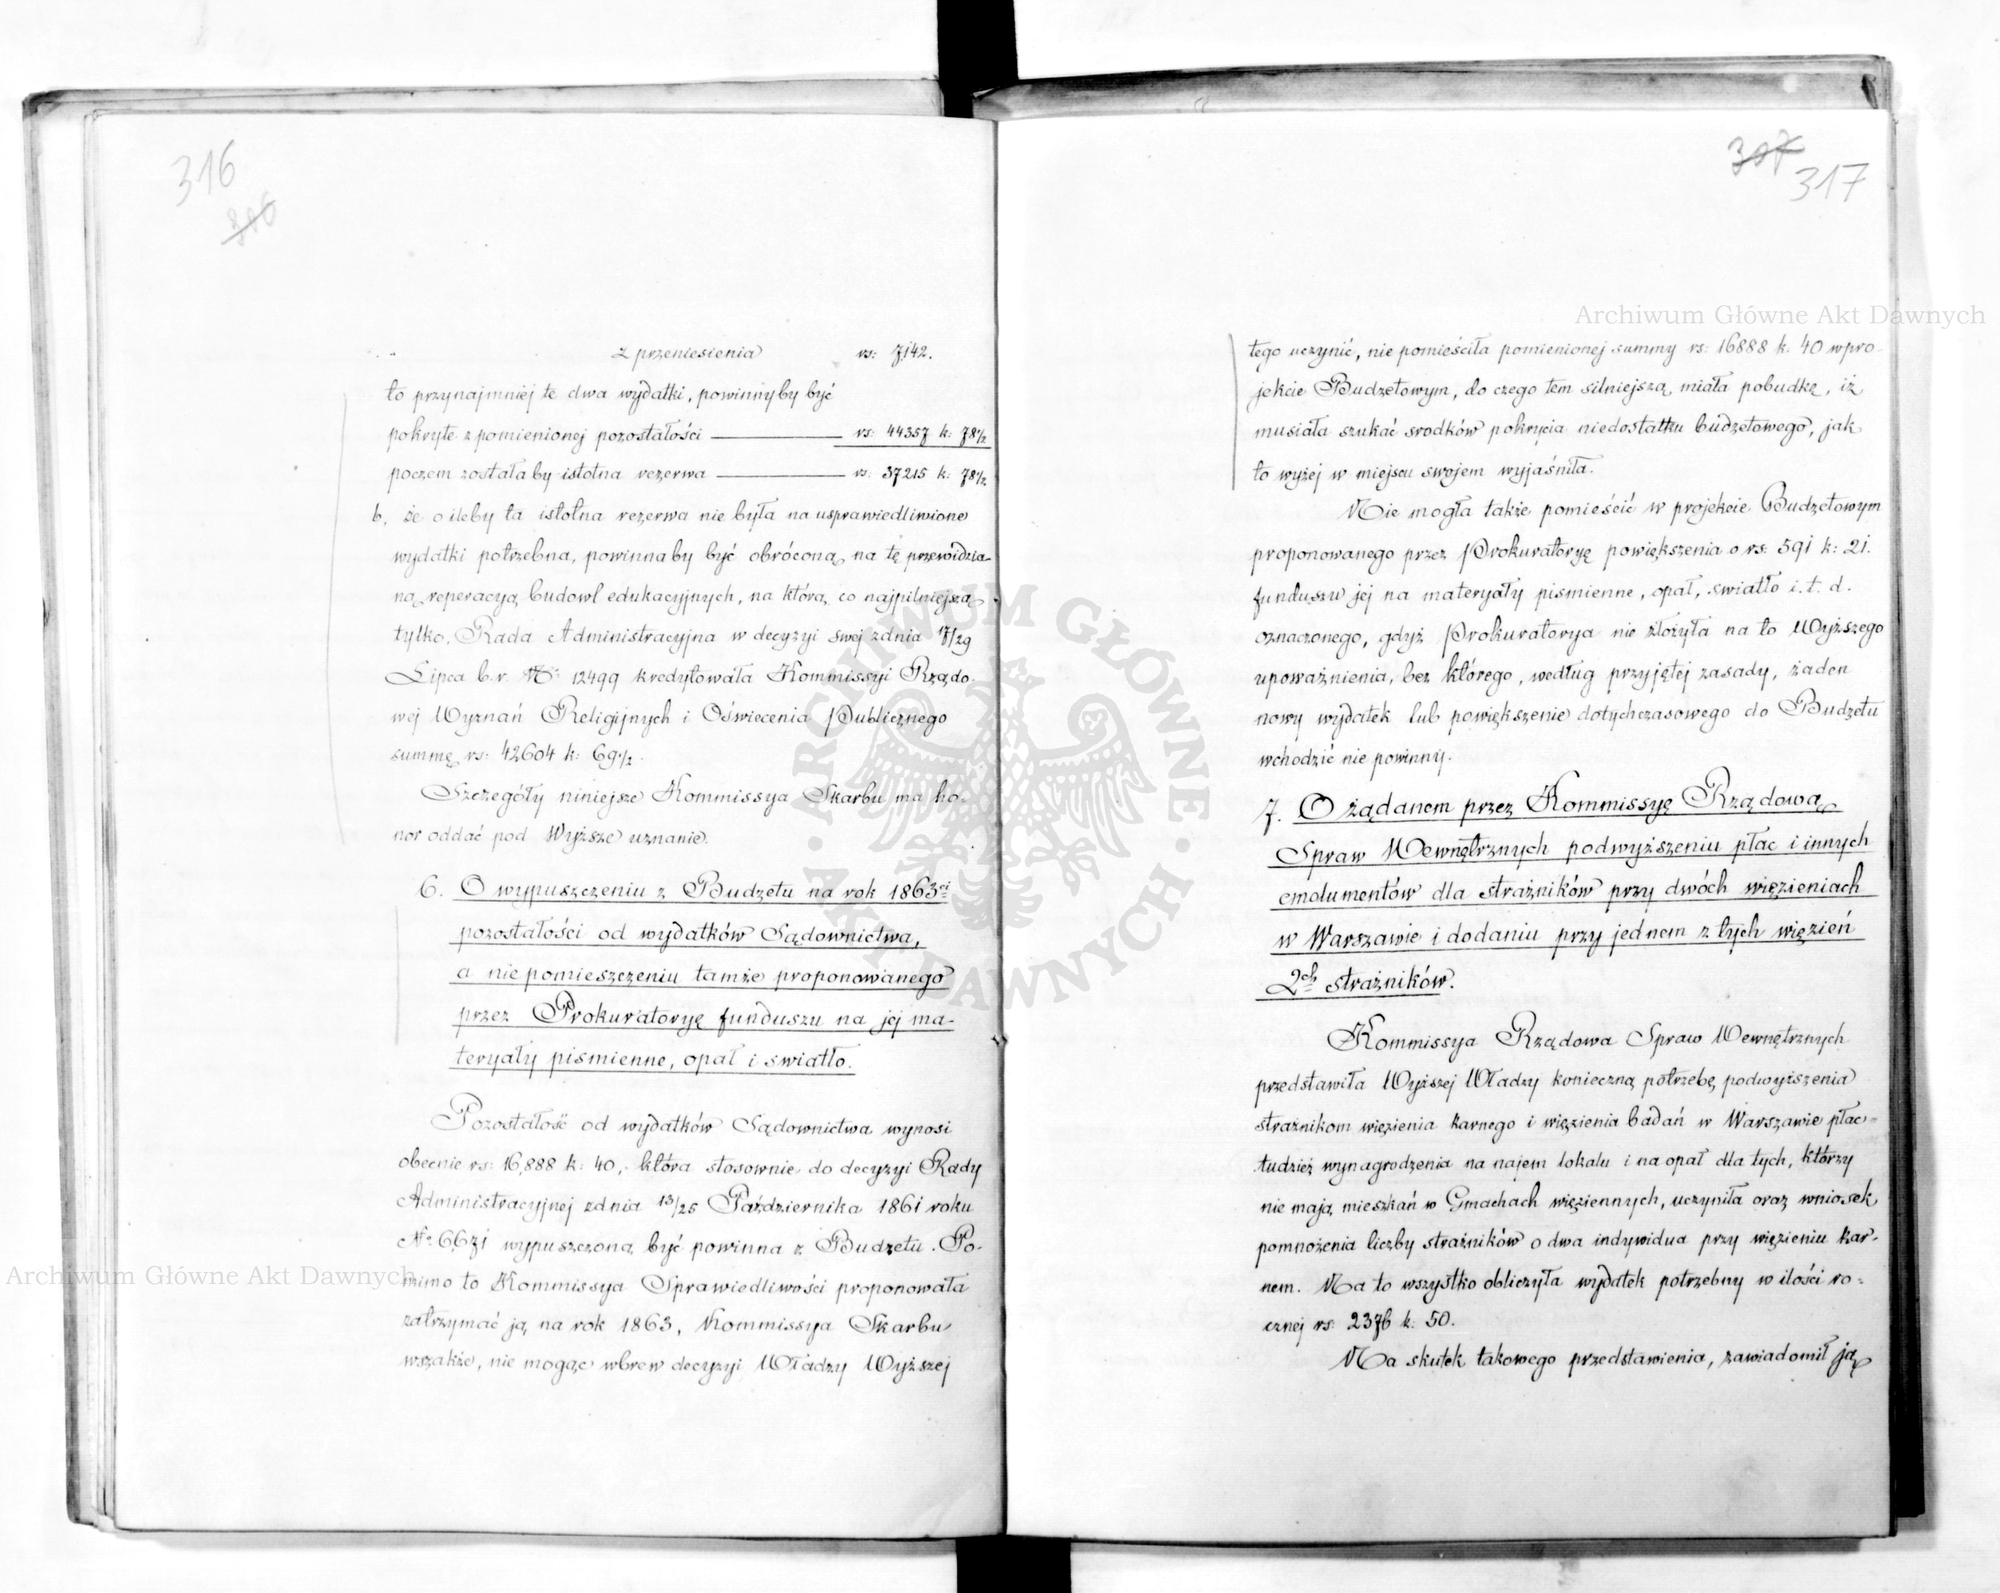 316
306
z przeniesienia rs: 7142.
to przynajmniej te dwa wydatki, powinnyby być
pokryte z pomienionej pozostałości rs: 44357 k: 78½
poczem zostałaby istotna rezerwa rs: 37215 k: 78½
b, że o ileby ta istotna rezerwa nie była na usprawiedliwione
wydatki potrzebna, powinnaby być obróconą na tę przewidzia-
ną reperacyą budowl edukacyjnych, na którą co najpilniejszą
tylko, Rada Administracyjna w decyzyi swej z dnia 17/29
Lipca b.r. No 12499 kredytowała Kommissyi Rządo-
wej Wyznań Religijnych i Oświecenia Publicznego
summę rs: 42604 k: 69½.
Szczegóły niniejsze Kommissya Skarbu ma ho-
nor oddać pod Wyższe uznanie.
6. O wypuszczeniu z Budżetu na rok 1863ci
pozostałości od wydatków Sądownictwa,
a nie pomieszczeniu tamże proponowanego
przez Prokuratoryę funduszu na jej ma-
teryały piśmienne, opał i swiatło.
Pozostałość od wydatków Sądownictwa wynosi
obecnie rs: 16,888 k: 40, która stosownie do decyzyi Rady
Administracyjnej z dnia 13/25 Października 1861 roku
No 6,671 wypuszczoną być powinna z Budżetu. Po-
mimo to Kommissya Sprawiedliwości proponowała
zatrzymać ją na rok 1863, Kommissya Skarbu
wszakże, nie mogąc wbrew decyzyi Władzy Wyższej
307
317
tego uczynić, nie pomieściła pomienionej summy rs: 16888 k: 40 w pro-
jekcie Budżetowym, do czego tem silniejszą miała pobudkę, iż
musiała szukać srodków pokrycia niedostatku budżetowego, jak
to wyżej w miejscu swojem wyjaśniła.
Nie mogła także pomieścić w projekcie Budżetowym
proponowanego przez Prokuratoryę powiększenia o rs: 591 k: 21.
funduszu jej na materyały piśmienne, opał, swiatło i.t.d.
oznaczonego, gdyż Prokuratorya nie złożyła na to Wyższego
upoważnienia, bez którego, według przyjętej zasady, żaden
nowy wydatek lub powiększenie dotychczasowego do Budżetu
wchodzić nie powinny.
7. O żądanem przez Kommissyę Rządową
Spraw Wewnętrznych podwyższeniu płac i innych
emolumentów dla strażników przy dwóch więzieniach
w Warszawie i dodaniu przy jednem z tych więzień
2ch strażników.
Kommissya Rządowa Spraw Wewnętrznych
przedstawiła Wyższej Władzy konieczną potrzebę podwyższenia
strażnikom więzienia karnego i więzienia badań w Warszawie płac-
tudzież wynagrodzenia na najem lokalu i na opał dla tych, którzy
nie mają mieszkań w Gmachach więziennych, uczyniła oraz wniosek
pomnożenia liczby strażników o dwa indywidua przy więzieniu kar-
nem. Na to wszystko obliczyła wydatek potrzebny w ilości ro-
cznej rs: 2376 k: 50.
Na skutek takowego przedstawienia, zawiadomił ją
Archiwum Główne Akt Dawnych
Archiwum Główne Akt Dawnych
ARCHIWUM GŁÓWNE AKT DAWNYCH